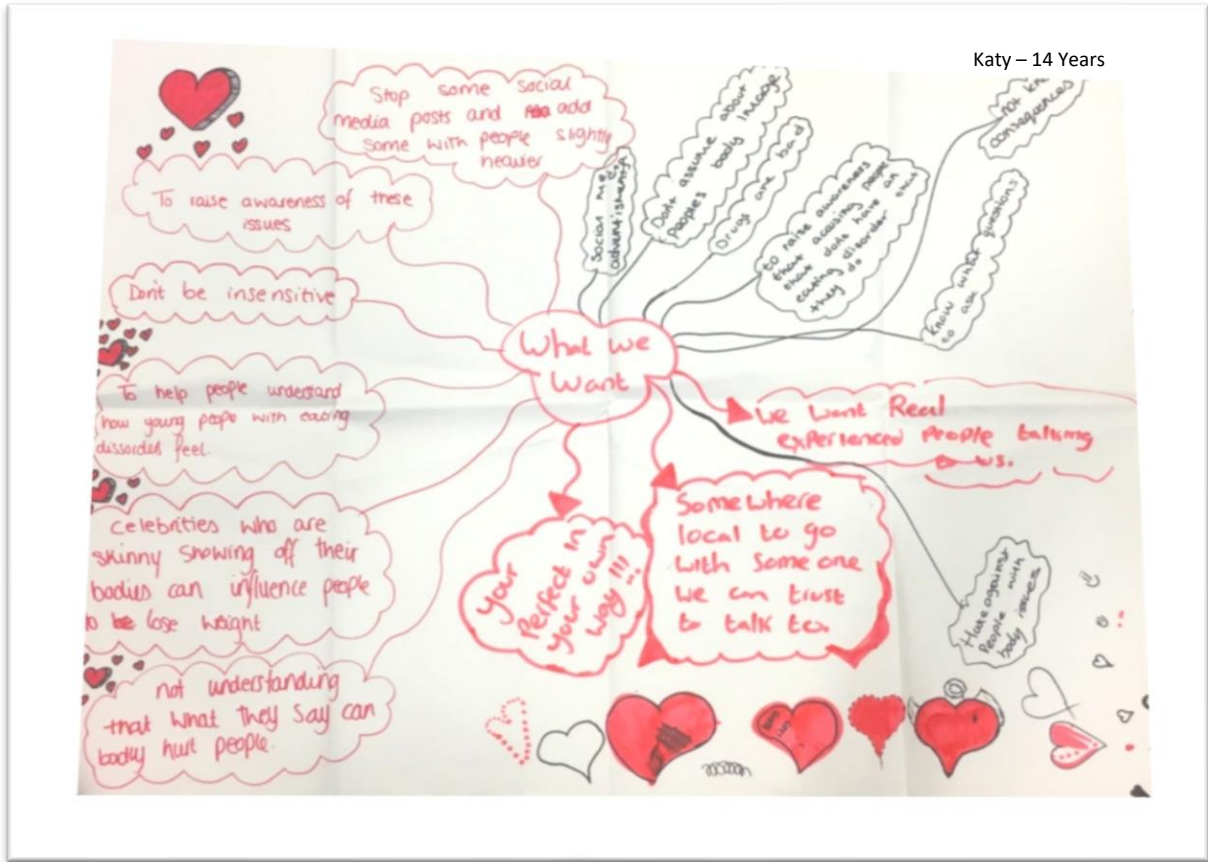 Katy – 14 Years
Stop some social
media posts and add
some with people slightly
heavier
To raise awareness of these
issues
Don't be insensitive
To help people understand
how young people with eating
dissorded feel.
celebrities who are
skinny showing off their
bodies can influence people
to be lose weight
not understanding
that what they say can
badly hurt people.
What we
Want
Social
advertisheng
Don't assume about
peoples body image
Drugs are bad
to raise awareness
that acusing people
that dont have an
eating disorder that
they do
not
consequences
know what questions
to ask
we want Real
experienced People talking
to us.
Somewhere
local to go
with someone
we can trust
to talk to.
your
Perfect in
your own
way!!!
Hate against
People with
body issues